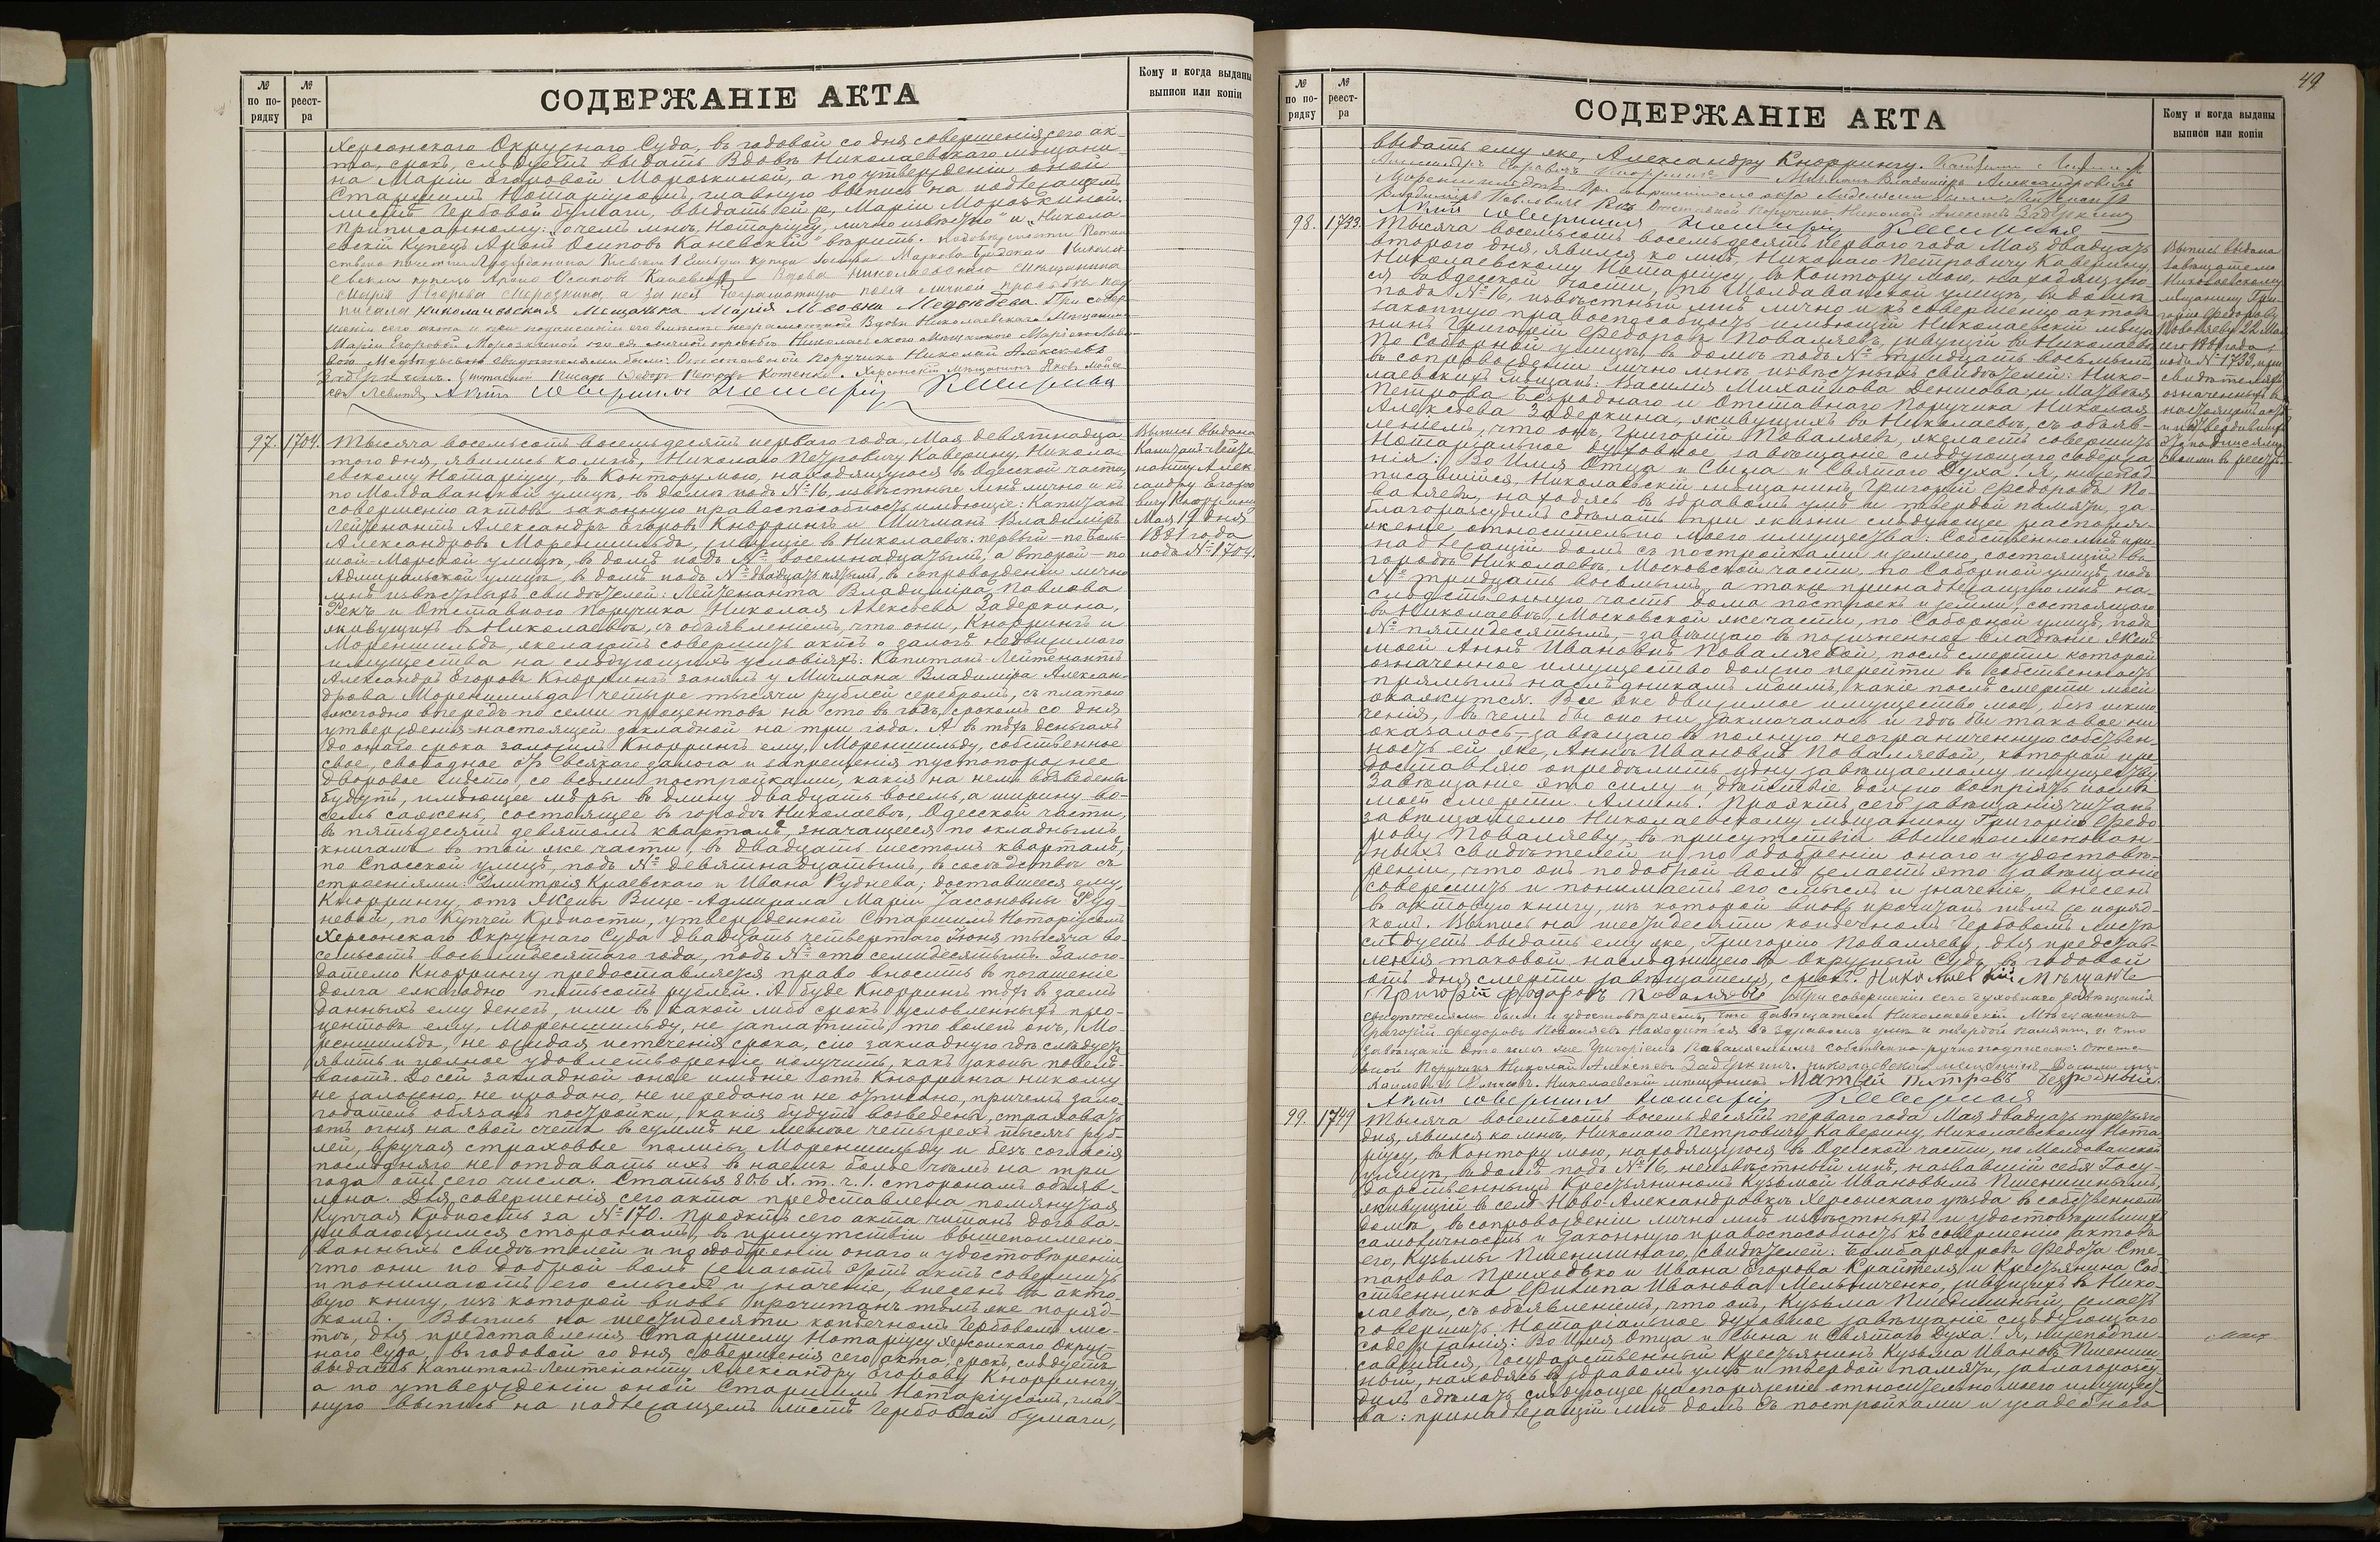 № по порядку
№ реестра
СОДЕРЖАНІЕ АКТА
Кому и когда выданы выписи или копіи
Херсонскаго Окружнаго Суда, въ годовой со дня совершенія сего ак-
та, срокъ, слѣдуетъ выдать Вдовѣ Николаевскаго мѣщани-
на Маріи Егоровой Морозкиной, а по утвержденіи оной
Старшимъ Нотаріусомъ, главную выпись на подлежащемъ
листѣ Гербовой бумаги, выдать ей же, Маріи Морозкиной.
Приписанному: „о чемъ мнѣ, Нотаріусу, лично извѣстно“ и „Никола-
евскій Купецъ Аронъ Осиповъ Каневскій“ вѣрить.
евскій купецъ Аронъ Осиповъ Каневскій Вдова Николаевскаго мѣщанина
Марія Егорова Морозкина, а за нея неграмотную по ея личной просьбѣ под-
писала Николаевская Мещанка Марія Львовна Медвѣдева. При совер-
шеніи сего акта и при подписаніи его вмѣсто неграмотной Вдовы Николаевскаго Мѣщанина
Маріи Егоровой Морозкиной по ея личной просьбѣ Николаевскою Мѣщанкою Маріею Льво-
вою Медвѣдевою свидѣтелями были: Отставной Поручикъ Николай Алексѣевъ
Задеркинъ. Отставной Писарь Ѳедоръ Петровъ Котенко. Херсонскій Мѣщанинъ Яковъ Мойсе-
евъ Левитъ. Актъ совершилъ Нотаріусъ
97. 1704. Тысяча восемьсотъ восемьдесятъ перваго года, Мая девятнадца-
таго дня, явились ко мнѣ, Николаю Петровичу Каверину, Никола-
евскому Нотаріусу, въ Контору мою, находящуюся въ Одесской части,
по Молдаванской улицѣ, въ домѣ подъ №16, извѣстные мнѣ лично и къ
совершенію актовъ законную правоспособность имѣющіе: Капитанъ
Лейтенантъ Александръ Егоровъ Кноррингъ и Мичманъ Владиміръ
Александровъ Мореншильдъ, живущіе въ Николаевѣ: первый – по Боль-
шой-Морской улицѣ, въ домѣ подъ № восемнадцатымъ, а второй – по
Адмиральской улицѣ, въ домѣ подъ № двадцать пятымъ, въ сопровожденіи лично
мнѣ извѣстныхъ свидѣтелей: Лейтенанта Владиміра Павлова
Рекъ и Отставного Поручика Николая Алексѣева Задеркина,
живущихъ въ Николаевѣ, съ объявленіемъ, что они, Кноррингъ и
Мореншильдъ, желаютъ совершить актъ о залогѣ недвижимаго
имущества на слѣдующихъ условіяхъ: Капитанъ-Лейтенантъ
Александръ Егоровъ Кноррингъ занялъ у Мичмана Владиміра Алексан-
дрова Мореншильда четыре тысячи рублей серебромъ, съ платою
ежегодно впередъ по семи процентовъ на сто въ годъ, срокомъ со дня
утвержденія настоящей закладной на три года. А въ тѣхъ деньгахъ
до онаго срока заложилъ Кноррингъ ему, Мореншильду, собственное
свое, свободное отъ всякаго залога и запрещенія пустопорожнее
дворовое мѣсто, со всѣми постройками, какія на немъ возведены
будутъ, имѣющее мѣры въ длину двадцать восемь, а ширину во-
семь саженъ, состоящее въ городѣ Николаевѣ, Одесской части,
въ пятьдесятъ девятомъ кварталѣ, значащееся по окладнымъ
книгамъ въ той же части, въ двадцать шестомъ кварталѣ,
по Спасской улицѣ, подъ № девятнадцатымъ, въ сосѣдствѣ съ
строеніями: Дмитрія Краевскаго и Ивана Руднева; доставшееся ему,
Кноррингу, отъ Жены Вице-Адмирала Маріи Іассоновны Руд-
невой, по Купчей Крѣпости, утвержденной Старшимъ Нотаріусомъ
Херсонскаго Окружнаго Суда двадцать четвертаго Іюня тысяча во-
семьсотъ восьмидесятаго года, подъ № сто семидесятымъ. Залого-
дателю Кноррингу предоставляется право вносить въ погашеніе
долга ежегодно пятьсотъ рублей. А буде Кноррингъ тѣхъ въ заемъ
данныхъ ему денегъ, или въ какой либо срокъ условленныхъ про-
центовъ ему, Мореншильду, не заплатитъ, то воленъ онъ, Мо-
реншильдъ, не ожидая истеченія срока, сію закладную гдѣ слѣдуетъ
явить и полное удовлетвореніе получить, какъ законы повелѣ-
ваютъ. До сей закладной оное имѣніе отъ Кнорринга никому
не заложено, не продано, не передано и не отписано, причемъ зало-
годатель обязанъ постройки, какія будутъ возведены, страховать
отъ огня на свой счетъ въ суммѣ не менѣе четырехъ тысячъ руб-
лей, вручая страховые полисы Мореншильду и безъ согласія
послѣдняго не отдавать ихъ въ наемъ болѣе чѣмъ на три
года отъ сего числа. Статья 806 X. т. ч. 1. сторонамъ объяв-
лена. Для совершенія сего акта представлена помянутая
Купчая Крѣпость за №170. Проэктъ сего акта читанъ догова-
ривающимся сторонамъ, въ присутствіи вышепоимено-
ванныхъ свидѣтелей и по одобреніи онаго и удостовѣреніи,
что они по доброй волѣ желаютъ этотъ актъ совершить
и понимаютъ его смыслъ и значеніе, внесенъ въ акто-
вую книгу, изъ которой вновь прочитанъ тѣмъ же поряд-
комъ. Выпись на шестидесяти копѣечномъ Гербовомъ лис-
тѣ, для представленія Старшему Нотаріусу Херсонскаго Окруж-
наго Суда, въ годовой со дня совершенія сего акта, срокъ, слѣдуетъ
выдать Капитанъ-Лейтенанту Александру Егорову Кноррингу,
а по утвержденіи оной Старшимъ Нотаріусомъ, глав-
ную выпись на подлежащемъ листѣ Гербовой бумаги,
Выпись выдана
Капитанъ-Лейте-
нанту Алек-
сандру Егоро-
вичу Кноррингу
Мая 19 дня
1881 года
подъ №1704.
49
№ по порядку
№ реестра
СОДЕРЖАНІЕ АКТА
Кому и когда выданы выписи или копіи
выдать ему же, Александру Кноррингу. Капитанъ Лейтенантъ
Александръ Егоровичъ Кноррингъ Мичманъ Владиміръ Александровичъ
Мореншильдъ. При совершеніи сего акта свидѣтелями были: Лейтенантъ
Владиміръ Павловичъ Рекъ. Отставной Поручикъ Николай Алексѣевъ Задеркинъ
Актъ совершилъ Нотаріусъ
98. 1733. Тысяча восемьсотъ восемьдесятъ перваго года Мая двадцать
второго дня, явился ко мнѣ, Николаю Петровичу Каверину,
Николаевскому Нотаріусу, въ Контору мою, находящую-
ся въ Одесской части, по Молдаванской улицѣ, въ домѣ
подъ №16, извѣстный мнѣ лично и къ совершенію актовъ
законную правоспособность имѣющій Николаевскій мѣща-
нинъ Григорій Ѳедоровъ Поваляевъ, живущій въ Николаевѣ
по Соборной улицѣ, въ домѣ подъ № тридцать восьмымъ
въ сопровожденіи лично мнѣ извѣстныхъ свидѣтелей: Нико-
лаевскихъ мѣщанъ: Василія Михайлова Денисова и Матвѣя
Петрова Безроднаго и Отставнаго Поручика Николая
Алексѣева Задеркина, живущихъ въ Николаевѣ, съ объяв-
леніемъ, что онъ, Григорій Поваляевъ, желаетъ совершить
Нотаріальное духовное завѣщаніе слѣдующаго содержа-
нія: Во Имя Отца и Сына и Святаго Духа! Я, нижепод-
писавшійся, Николаевскій мѣщанинъ Григорій Ѳедоровъ По-
валяевъ, находясь въ здравомъ умѣ и твердой памяти, за-
благоразсудилъ сдѣлать при жизни слѣдующее распоря-
женіе относительно моего имущества: Собственно мнѣ при-
надлежащій домъ съ постройками и землею, состоящій въ
городѣ Николаевѣ, Московской части, по Соборной улицѣ подъ
№ тридцать восьмымъ, а также принадлежащую мнѣ на-
слѣдственную часть дома построекъ и земли, состоящаго
въ Николаевѣ, Московской же части, по Соборной улицѣ, подъ
№ пятидесятымъ, – завѣщаю въ пожизненное владѣніе Женѣ
моей Аннѣ Ивановнѣ Поваляевой, послѣ смерти которой
означенное имущество должно перейти въ собственность
прямымъ наслѣдникамъ моимъ, какіе послѣ смерти моей
окажутся. Все же движимое имущество мое, безъ исклю-
ченія, въ чемъ бы оно ни заключалось и гдѣ бы таковое ни
оказалось – завѣщаю въ полную неограниченную собствен-
ность ей же, Аннѣ Ивановнѣ Поваляевой, которой пре-
доставляю опредѣлить цѣну завѣщаемому имуществу.
Завѣщаніе это силу и дѣйствіе должно воспріять послѣ
моей смерти. Аминь. Проэктъ сего завѣщанія читанъ
завѣщателю Николаевскому мѣщанину Григорію Ѳедо-
рову Поваляеву, въ присутствіи вышепоименован-
ныхъ свидѣтелей и по одобреніи онаго и удостовѣ-
реніи, что онъ по доброй волѣ желаетъ это завѣщаніе
совершить и понимаетъ его смыслъ и значеніе, внесенъ
въ актовую книгу, изъ которой вновь прочитанъ тѣмъ же поряд-
комъ. Выпись на шестидесяти копѣечномъ Гербовомъ листѣ
слѣдуетъ выдать ему же, Григорію Поваляеву, для представ-
ленія таковой наслѣдницею въ Окружный Судъ въ годовой
отъ дня смерти завѣщателя, срокъ. Николаевкій Мѣщане
Григорій Фодоровъ Поваляевъ При совершеніи сего духовнаго завѣщанія
свидѣтелями были и удостовѣряемъ, что завѣщатель Николаевскій Мѣщанинъ
Григорій Ѳедоровъ Поваляевъ находится въ здравомъ умѣ и твердой памяти, и что
завѣщаніе это имъ же Григоріемъ Поваляевымъ собственно-ручно подписано: Отста-
вной Поручикъ Николай Алексѣевъ Задеркинъ. Николаевскій мещанинъ Василій Ми-
хайловъ Денисовъ. Николаевскій мещанинъ Матвѣй Питровъ безродный.
Актъ совершилъ Нотаріусъ
99. 1749 Тысяча восемьсотъ восемьдесятъ перваго года Мая двадцать третьяго
дня, явился ко мнѣ, Николаю Петровичу Каверину, Николаевскому Нота-
ріусу, въ Контору мою, находящуюся въ Одесской части, по Молдаванской
улицѣ, въ домѣ подъ №16, неизвѣстный мнѣ, назвавшій себя Госу-
дарственнымъ Крестьяниномъ Кузьмой Ивановымъ Пшенишнымъ,
живущій въ селѣ Ново-Александровкѣ Херсонскаго уѣзда въ собственномъ
домѣ, въ сопровожденіи лично мнѣ извѣстныхъ и удостовѣрившихъ
самоличность и законную правоспособность къ совершенію актовъ
его, Кузьмы Пшенишнаго, свидѣтелей: Бомбардировъ Ѳедота Сте-
панова Приходько и Ивана Егорова Крайтеля и Крестьянина Соб-
ственника Филипа Иванова Мельниченко, живущихъ въ Нико-
лаевѣ, съ объявленіемъ, что онъ, Кузьма Пшенишный, желаетъ
совершить Нотаріальное духовное завѣщаніе слѣдующаго
содержанія: Во Имя Отца и Сына и Святаго Духа! Я, нижеподпи-
савшійся, Государственный Крестьянинъ Кузьма Ивановъ Пшениш-
ный, находясь въ здравомъ умѣ и твердой памяти, заблагоразсу-
дилъ сдѣлать слѣдующее распоряженіе относительно моего имущест-
ва: принадлежащій мнѣ домъ съ постройками и усадебнаго
Выпись выдана
Завѣщателю
Николаевскому
мѣщанину Гри-
горію Ѳедорову
Поваляеву 22 Мая
сего 1881 года
подъ №1733, при
свидѣтеляхъ
означенныхъ въ
настоящемъ актѣ
и подтвердившихъ
это подписями
своими въ реестрѣ.